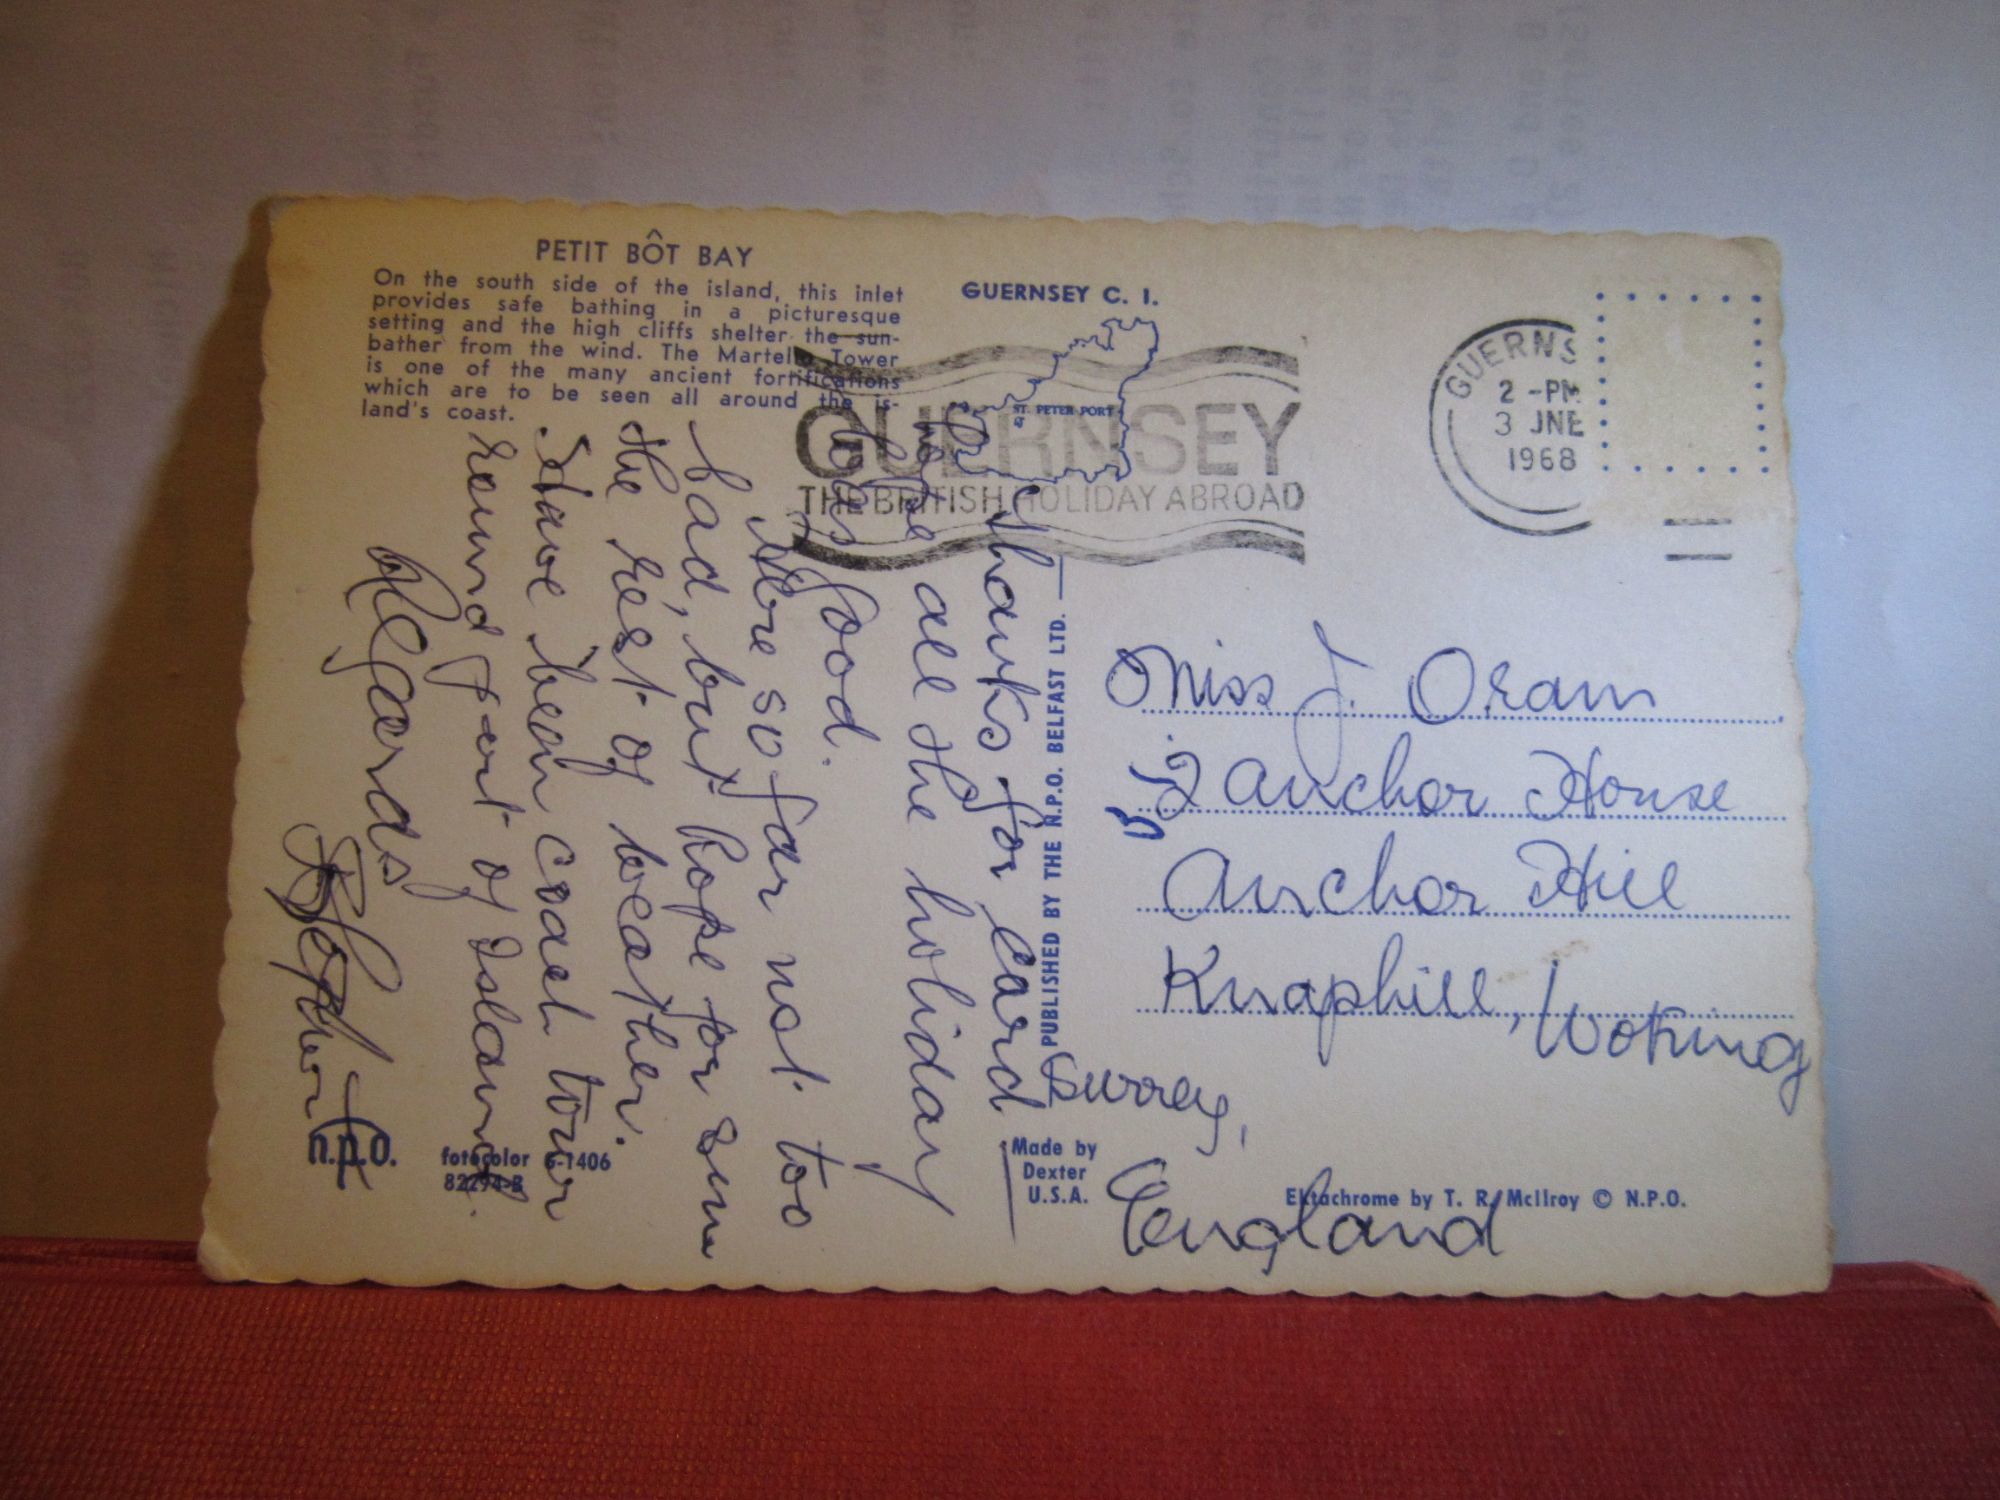 PETIT BÔT BAY
On the south side of the island, this inlet
provides safe bathing in a picturesque
setting and the high cliffs shelter the sun-
bather from the wind. The Martello Tower
is one of the many ancient fortifications
which are to be seen all around the is-
land's coast.
GUERNSEY C. I.
ST. PETER PORT
GUERNSEY
THE BRITISH HOLIDAY ABROAD
GUERNS
2 -PM
3 JNE
1968
Thanks for card
hope all the holiday
was good.
Here so far not too
bad, but hope for some
the rest of weather.
Have been coach tour
round part of Island.
Regards
PUBLISHED BY THE N.P.O. BELFAST LTD.
Miss J. Oram
2 Anchor House
Anchor Hill
Knaphill, Woking
Surrey,
England
n.p.o.
fotocolor G-1406
82294-B
Made by
Dexter
U.S.A.
Ektachrome by T. R. McIlroy © N.P.O.